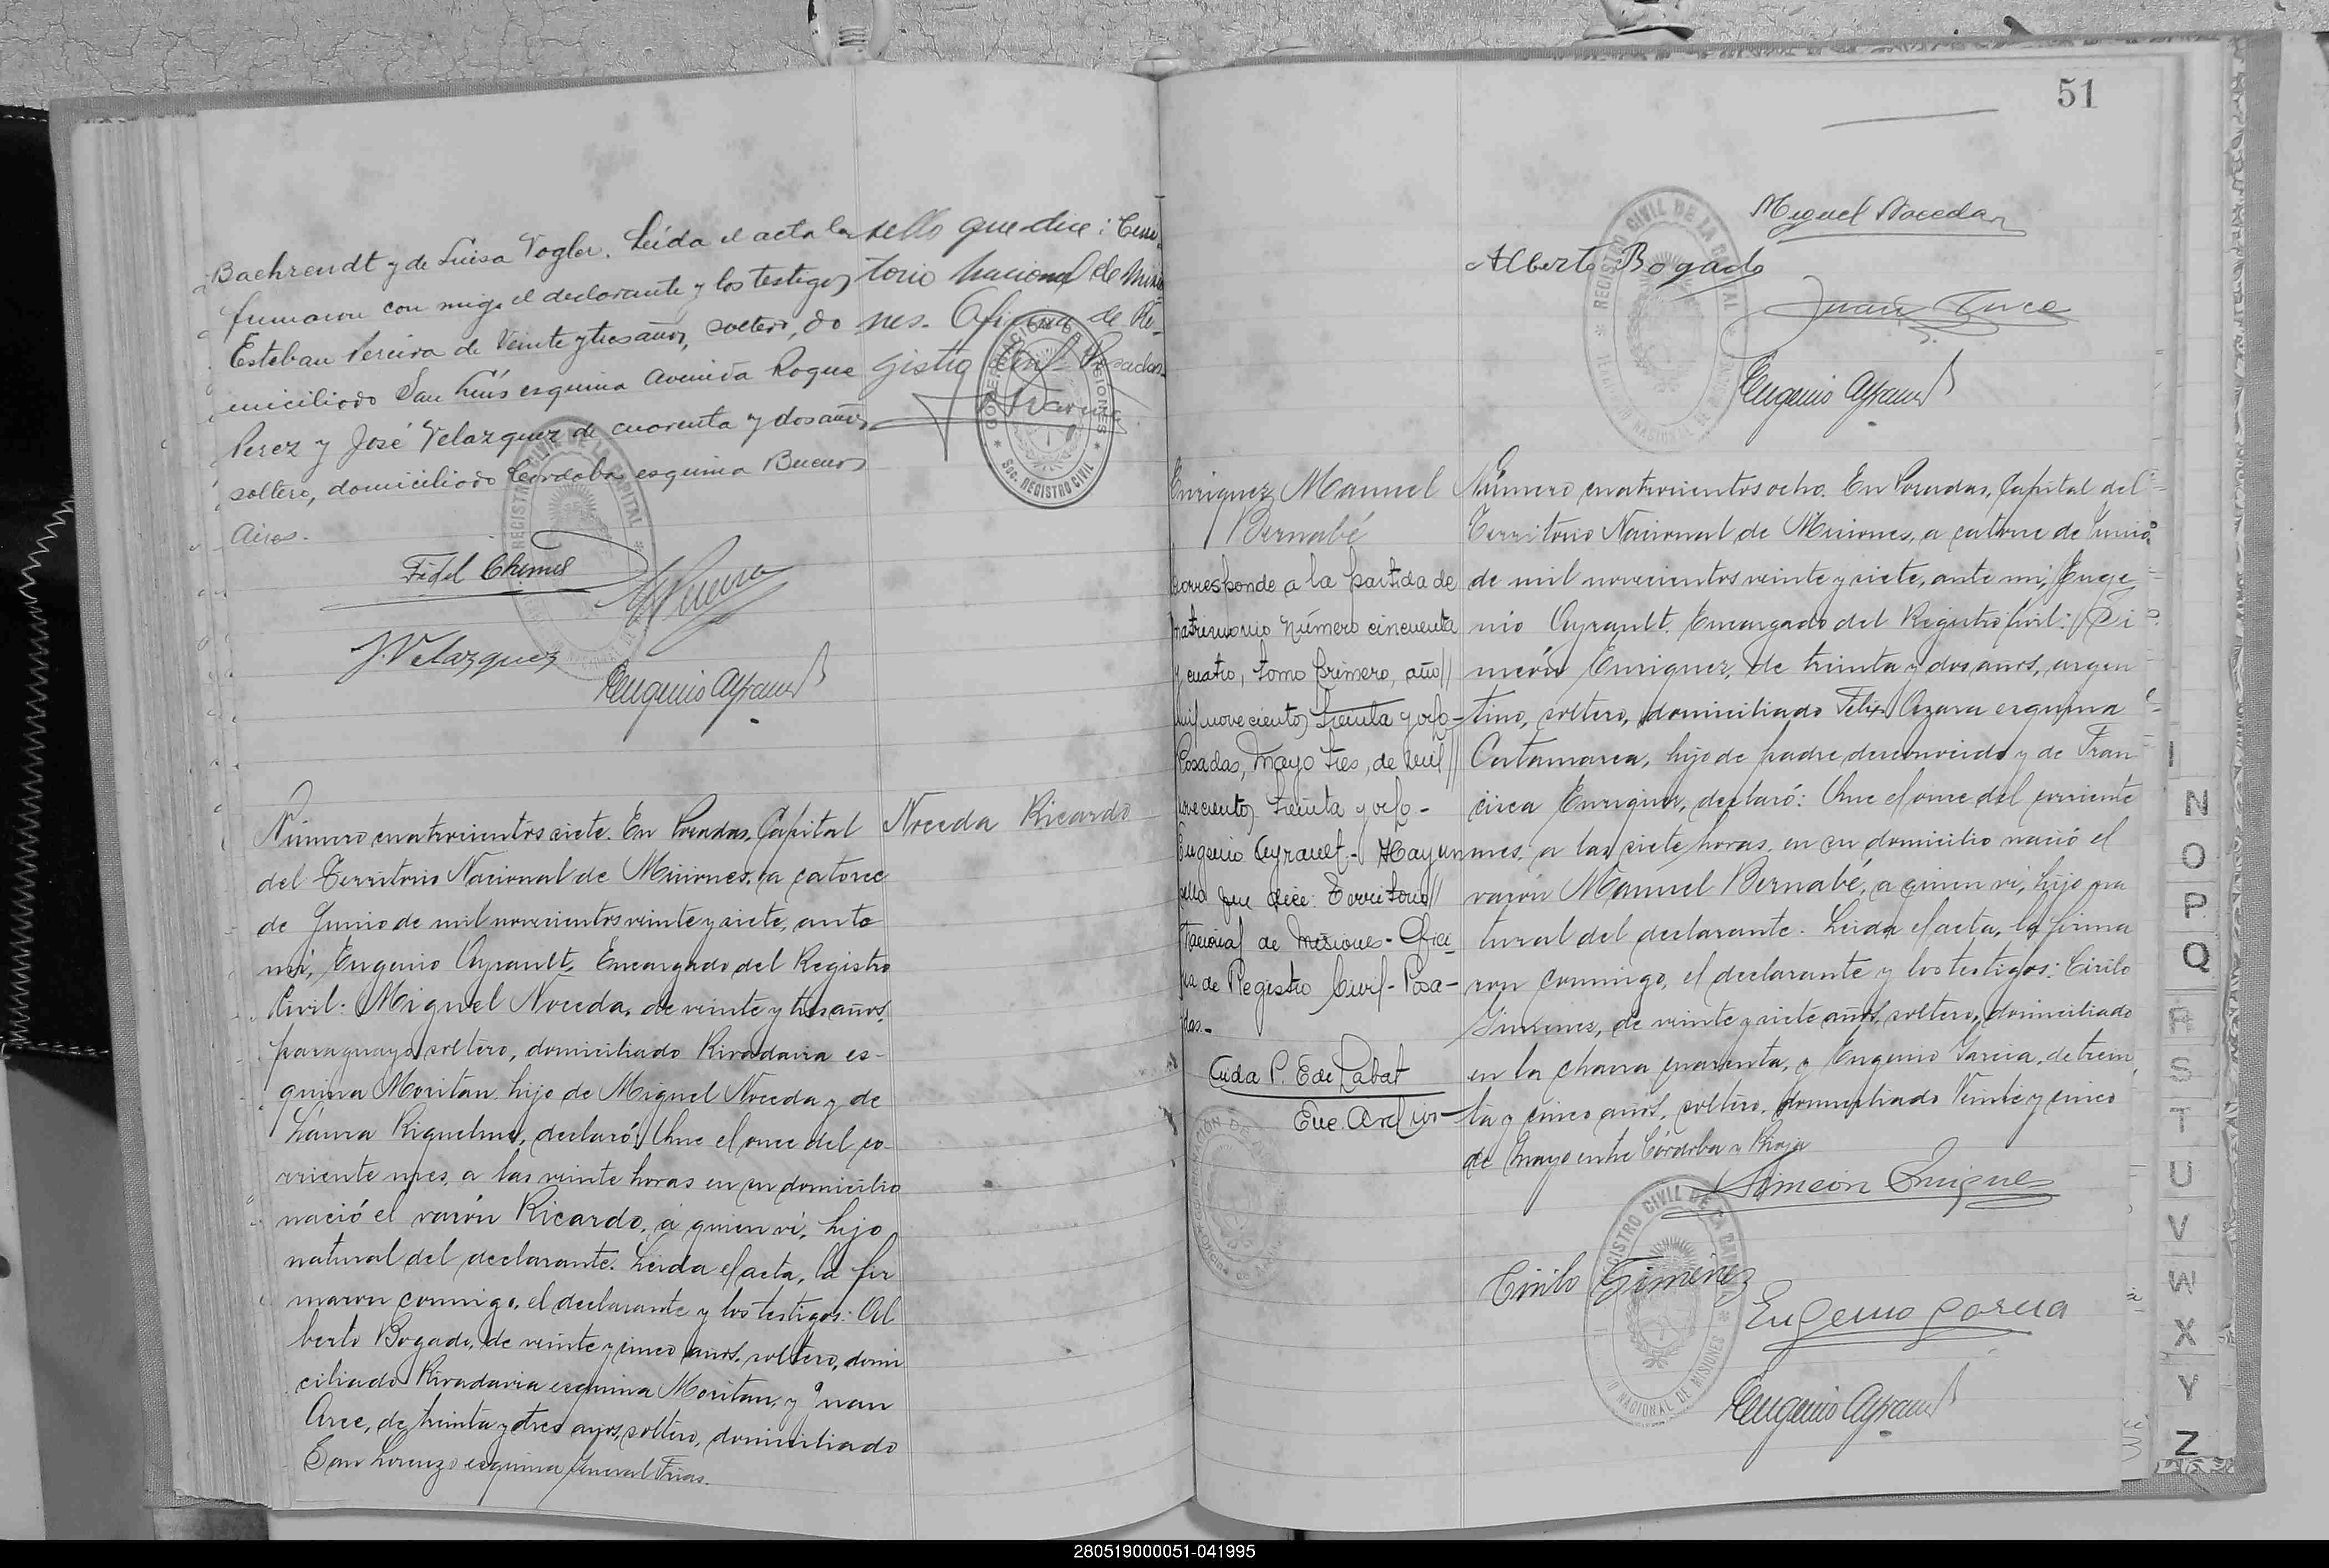 Baehrendt y de Luisa Vogler. Leída el acta la
firmaron con migo el declarante y los testigos
Esteban Pereira de Veinte y tres años, soltero, do
miciliado San Luis esquina Avenida Roque
Perez y José Velazquez de cuarenta y dos años
soltero, domiciliado Cordoba esquina Buenos
Aires.
Fidel Chemes
J. Velazquez
Eugenio Ayrault
sello que dice: Terri
torio Nacional de Misio
nes. Oficina de Re-
gistro Civil- Posadas
GOBERNACION DE MISIONES
Sec. REGISTRO CIVIL
Número cuatrocientos siete. En Posadas, Capital
del Territorio Nacional de Misiones, a catorce
de Junio de mil novecientos veinte y siete, ante
mí, Eugenio Ayrault, Encargado del Registro
Civil: Miguel Noceda, de veinte y tres años,
paraguayo, soltero, domiciliado Rivadavia es-
quina Moritan, hijo de Miguel Noceda y de
Laura Riquelme, declaró: Que el once del co-
rriente mes, a las veinte horas en su domicilio
nació el varón Ricardo, a quien ví, hijo
natural del declarante. Leida el acta, la fir
maron conmigo, el declarante y los testigos: Al
berto Bogado, de veinte y cinco años, soltero, domi
ciliado Rivadavia esquina Moritan, y Juan
Arce, de treinta y tres años, soltero, domiciliado
San Lorenzo esquina General Frias.
Noceda Ricardo
51
Miguel Noceda
Alberto Bogado
Juan Arce
Eugenio Ayrault
REGISTRO CIVIL DE LA CAPITAL
Enriquez, Manuel
Bernabé
Corresponde a la partida de
matrimonio número cincuenta
y cuatro, tomo primero, año//
mil novecientos treinta y ocho-
Posadas, Mayo tres, de mil//
novecientos treinta y ocho-
Eugenio Ayrault.- Hay un
sello que dice: Territorio//
Nacional de Misiones- Ofici-
na de Registro Civil- Posa-
das.-
Aida P. E de Labat
Número cuatrocientos ocho. En Posadas, Capital del
Territorio Nacional de Misiones, a catorce de Junio
de mil novecientos veinte y siete, ante mi, Euge
nio Ayrault, Encargado del Registro Civil: Si
meón Enriquez, de treinta y dos años, argen
tino, soltero, domiciliado Felix Azara esquina
Catamarca, hijo de padre desconocido y de Fran
cisca Enriquez, declaró: Que el once del corriente
mes, a las siete horas, en su domicilio nació el
varón Manuel Bernabé, a quien ví, hijo na
tural del declarante. Leida el acta, la firma
ron conmigo, el declarante y los testigos: Cirilo
Gimenez, de veinte y siete años, soltero, domiciliado
en la chacra cuarenta, y Eugenio Garcia, de trein
ta y cinco años, soltero, domiciliado Veinte y cinco
de Mayo entre Córdoba y Rioja
Simeón Enriquez
Cirilo Gimenez
Eugenio Garcia
Eugenio Ayrault
REGISTRO CIVIL DE LA CAPITAL
TERRITORIO NACIONAL DE MISIONES
N
O
P
Q
R
S
T
U
V
W
X
Y
Z
280519000051-041995